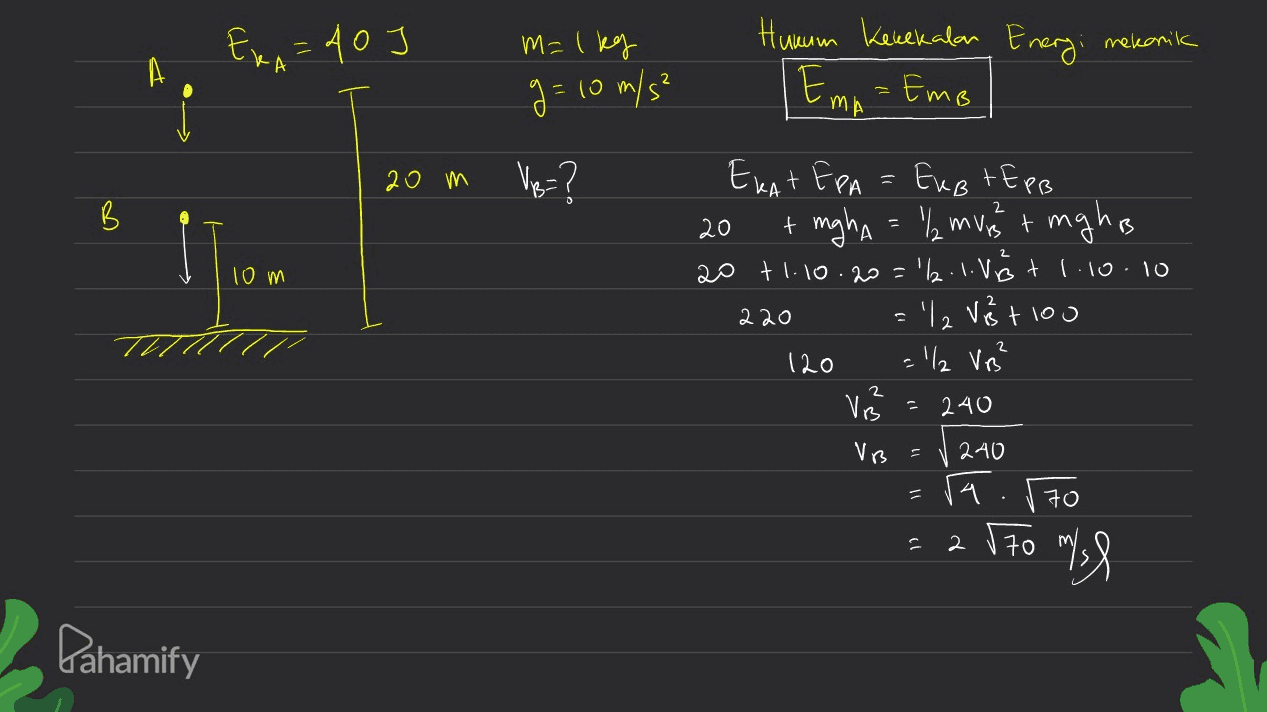 E_kA = 40 J
A
20 m
B
10 m
m = 1 kg
g = 10 m/s²
V_B = ?
Hukum Kekekalan Energi mekanik
E_mA = E_mB
E_kA + E_PA = E_kB + E_PB
20 + mgh_A = 1/2 mv_B² + mgh_B
20 + 1.10.20 = 1/2 . 1. V_B² + 1.10.10
220 = 1/2 V_B² + 100
120 = 1/2 V_B²
V_B² = 240
V_B = √240
= √4 . √70
= 2 √70 m/s
Pahamify